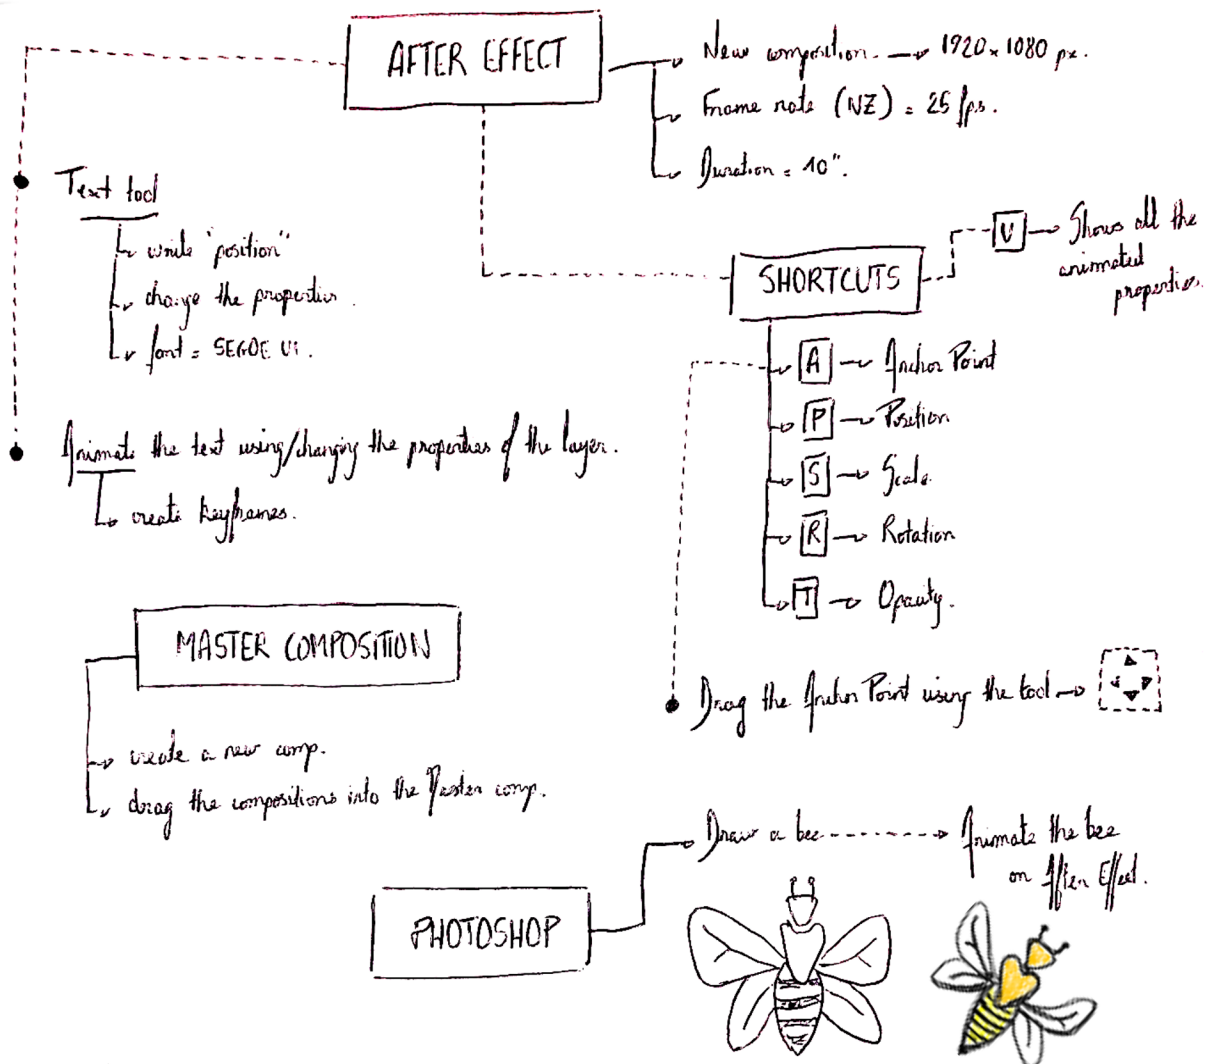 AFTER EFFECT
New composition. → 1920 x 1080 px.
Frame rate (NZ) = 25 fps.
Duration = 10".
Text tool
write "position"
change the properties.
font = SEGOE UI.
Animate the text using/changing the properties of the layer.
create keyframes.
SHORTCUTS
U → Shows all the
animated
properties.
A → Anchor Point
P → Position
S → Scale.
R → Rotation
T → Opacity.
Drag the Anchor Point using the tool →
MASTER COMPOSITION
create a new comp.
drag the compositions into the Master comp.
PHOTOSHOP
Draw a bee
Animate the bee
on After Effect.